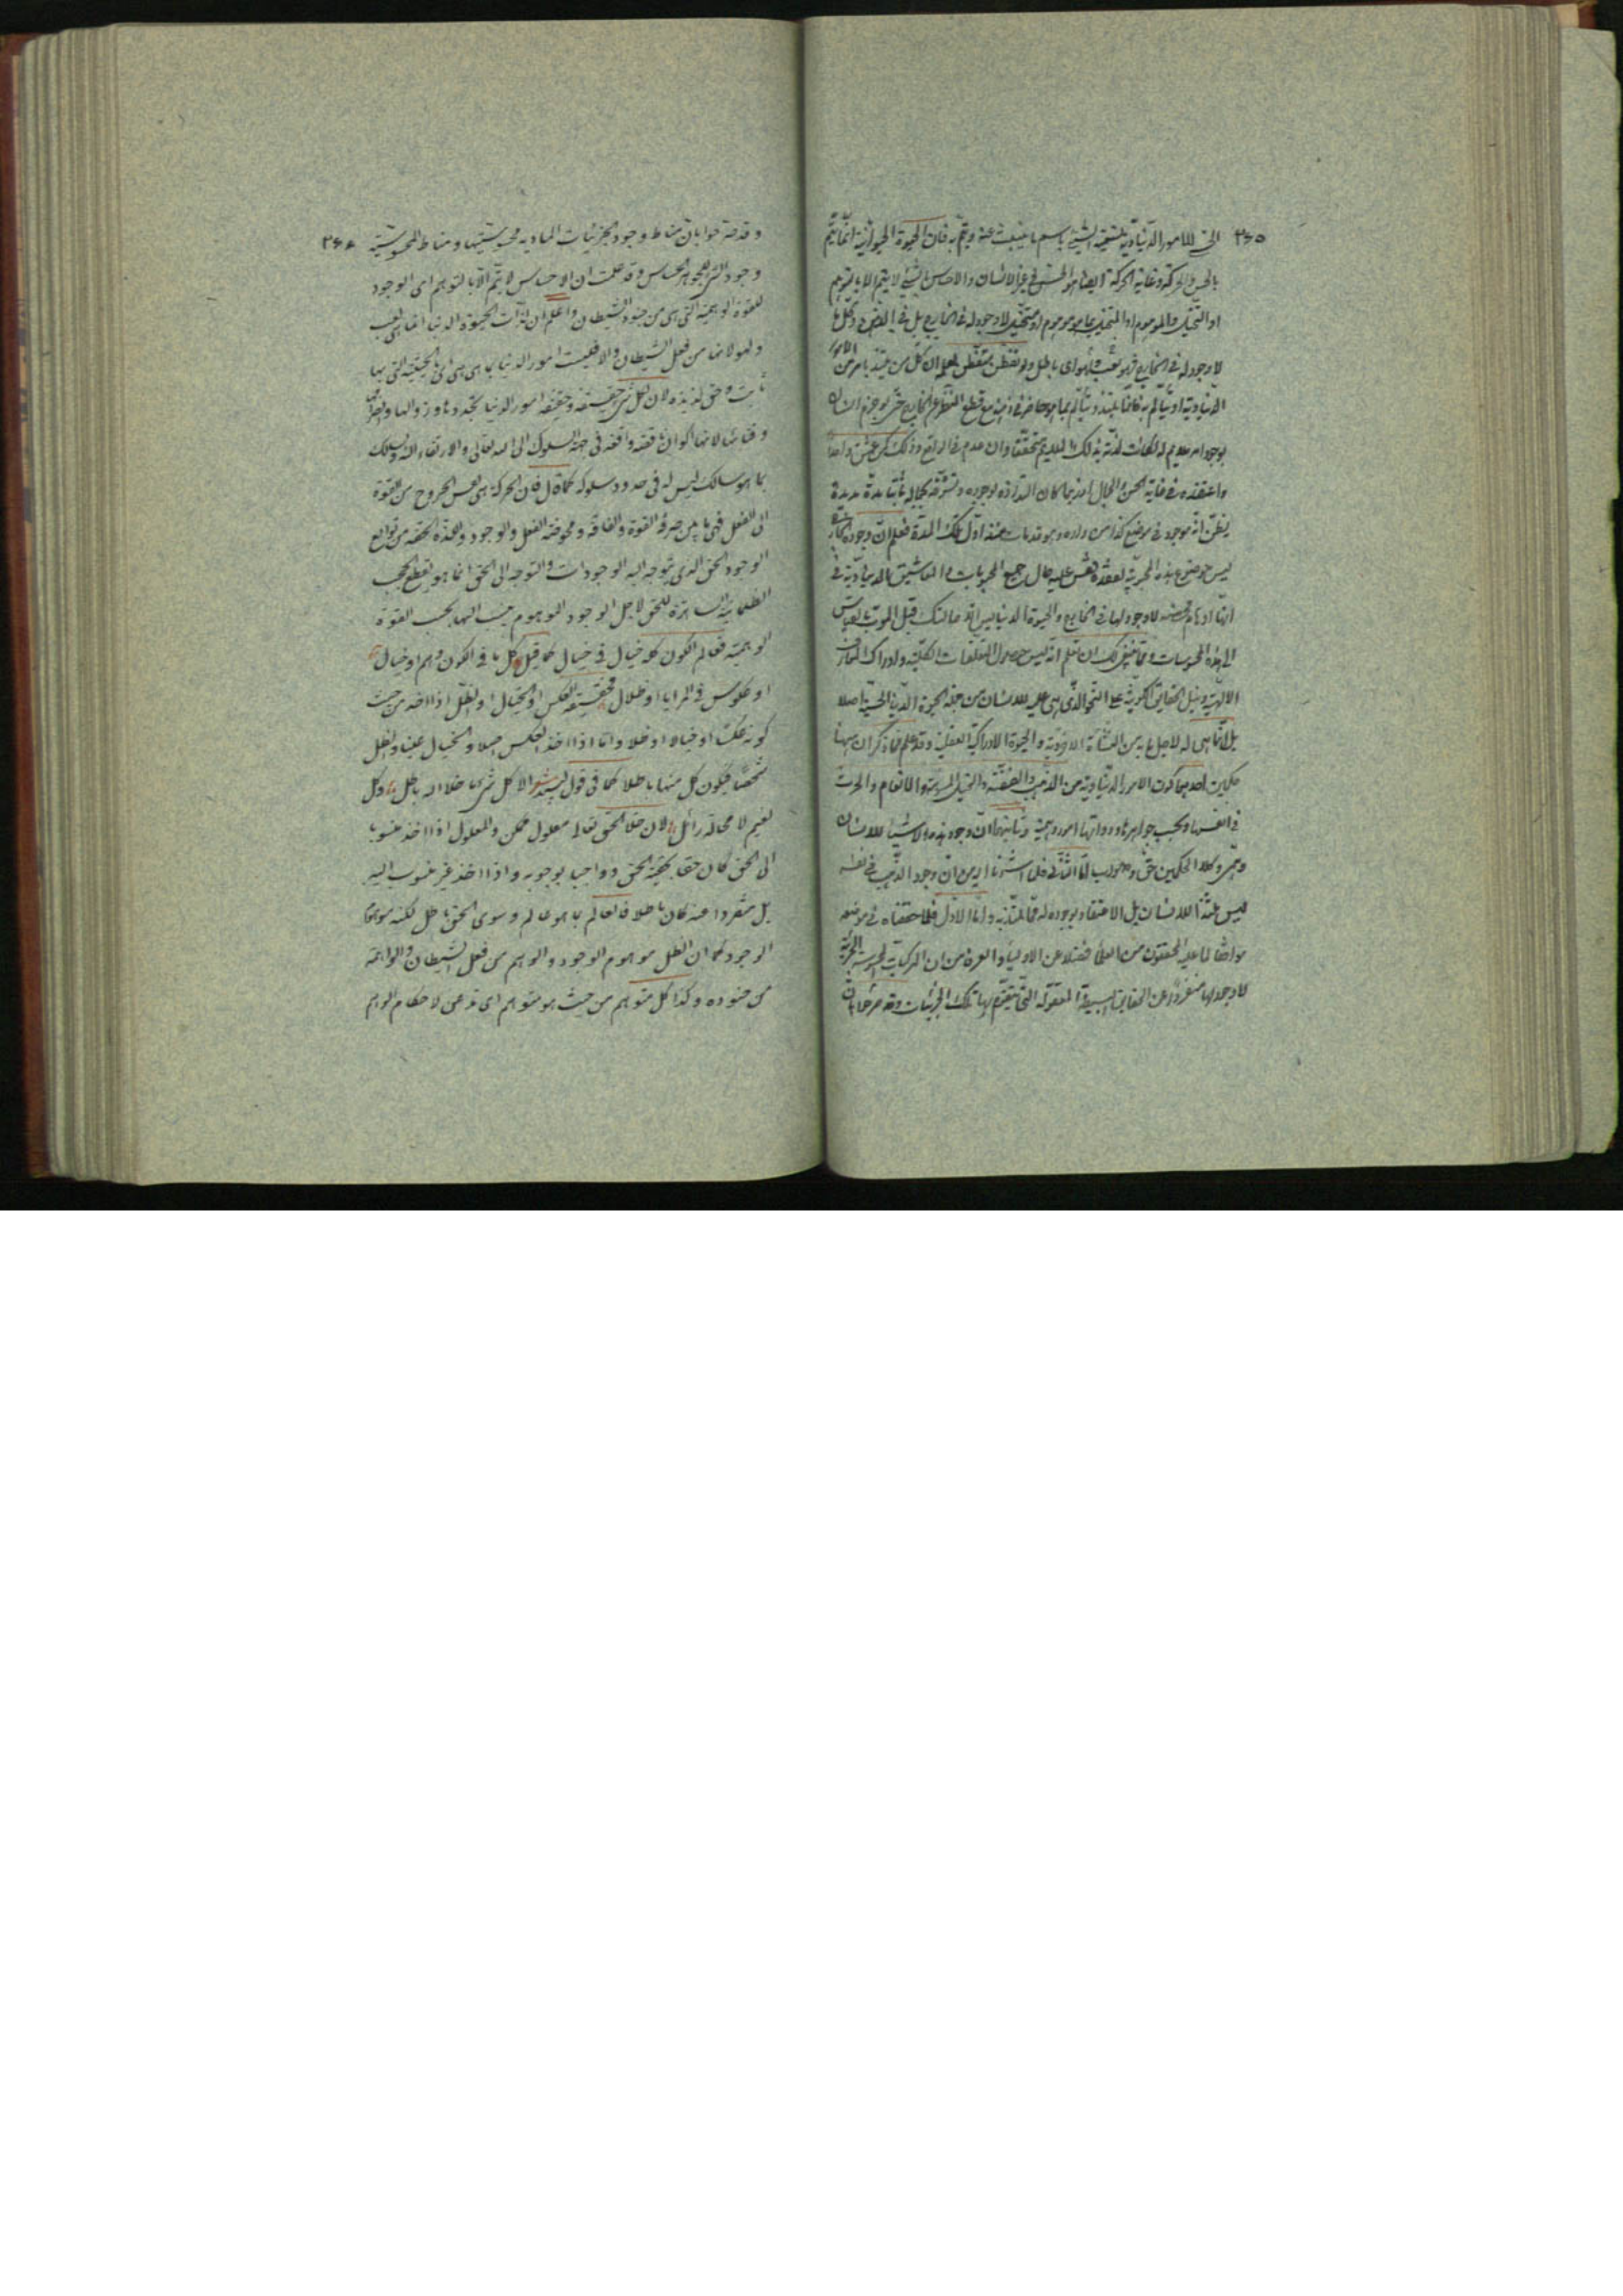 ٣٤٥
الى الامور الدنياوية تسمية الشيء باسم ما ينبعث عنه ويتم به فان الحيوة الحيوانية انما يتم
بالحس والحركة وغاية الحركة ايضا هو الحس في غير الانسان والاحساس بالشيء لا يتم الا بالتوهم
او التخيل والموهوم او المتخيل بما هو موهوم او متخيل لا وجود له في الخارج بل في الذهن وكل ما
لا وجود له في الخارج فهو لعب ولهو اى باطل ولو تفطن متفطن لعلم ان كل من يتلذذ بامر من الامور
الدنياوية او يتألم به فانما يلتذ ويتألم بما هو حاضر في ذهنه مع قطع النظر عن الخارج حتى لو جزم انسان
بوجود امر ملايم له لكانت لذته بذلك الملايم متحققا وان عدم في الواقع وذلك كمن عشق واحدا
واعتقده في غاية الحسن والجمال فربما كان التذاذه بوجوده وتشوقه بجماله ثابتا مدة مديدة
يظن انه موجود في موضع كذا من داره وهو قد مات منذ اول تلك المدة فعلم ان وجوده الخارجي
ليس حوضرعنده المحبوبية لعقده فقس عليه حال جميع المحبوبات والمعاشيق الدنياوية في
انها اوهام محضه لا وجود لها في الخارج والحيوة الدنيا ليس الا حالتك قبل الموت بالقياس
الى هذه المحسوسات ومما ينبغي لك ان تعلم انه ليس حصول التعقلات الكلية وادراك المعارف
الالهية ونيل الحقايق الكونية على النحو الذى هى عليه للانسان من جملة الحيوة الدنيا الحسية اصلا
بل انما هى له لاجل ما به من النشأة الاخروية والحيوة الادراكية العقلية وقد علم مما ذكر ان ههنا
حكمين احدهما كون الامور الدنياوية من الذهب والفضة والخيل المسومة والانعام والحرث
في انفسها وبحسب جواهرها وذواتها امور وهمية وثانيهما ان وجود هذه الاشياء للانسان
وهمى وكلا الحكمين حق وصواب اما الثاني فلما اشرنا اليه من ان وجود الذهب في نفسه
ليس ملذا للانسان بل الاعتقاد بوجوده له مما يلتذ به واما الاول فلما حققناه في موضعه
موافقا لما عليه المحققون من العلماء فضلا عن الاولياء والعرفاء من ان المركبات المحسوسة الجزئية
لا وجود لها منفردا عن الحقايق البسيطة المعقولة التى يتقوم بها تلك الجزئيات وقد صرحوا بان
٣٤٦
وقد صرحوا بان مناط وجود الجزئيات المادية محسوسيتها ومناط المحسوسية
وجود الشيء للجوهر الحساس وقد علمت ان الاحساس لا يتم الا بالتوهم اى الوجود
للقوة الوهمية التى هى من جنود الشيطان واعلم ان لذات الحيوة الدنيا انما هى لعب
ولهو لانها من فعل الشيطان والا فليست امور الدنيا بما هى هى اى بالحقيقة التى بها
ثابت وحق لذيذه لان لكل شيء حقيقة وحقيقة امور الدنيا تجددها وزوالها وانصرامها
وفنائها لانها اكوان ناقصه واقعه في جهة السلوك الى الله تعالى والارتقاء اليه والسالك
بما هو سالك ليس له في حدود سلوكه كمال فان الحركة هى نفس الخروج من القوة
الى الفعل فهى ما بين صرف القوة والفاقه ومحوضة الفعل والوجود واللذة الحقه من توابع
الوجود الحق الذى يتوجه اليه الوجودات والتوجه الى الحق انما هو بقطع الحجب
الظلمانية الساترة للحق لاجل الوجود الموهوم ينسب اليها بحسب القوة
الوهمية فعالم الكون كله خيال في خيال كما قيل كل ما في الكون وهم او خيال
او عكوس في المرايا او ظلال فحقيقة العكس او الخيال او الظل اذا اخذ من حيث
كونه عكسا او خيالا او ظلا واما اذا اخذ العكس اصلا والخيال عينا والظل
شخصا فيكون كل منها باطلا كما في قول لبيد شعر الا كل شيء ما خلا الله باطل وكل
نعيم لا محالة زائل لان ما خلا الحق تعالى معلول ممكن والمعلول اذا اخذ منسوبا
الى الحق كان حقا بحقية الحق وواجبا بوجوبه واذا اخذ غير منسوب اليه
بل منفردا عنه كان باطلا فالعالم بما هو عالم وسوى الحق باطل لكنه موهوم
الوجود كما ان الظل موهوم الوجود والوهم من فعل الشيطان والواهمة
من جنوده وكذا كل متوهم من حيث هو متوهم اى مذعن لاحكام الوهم